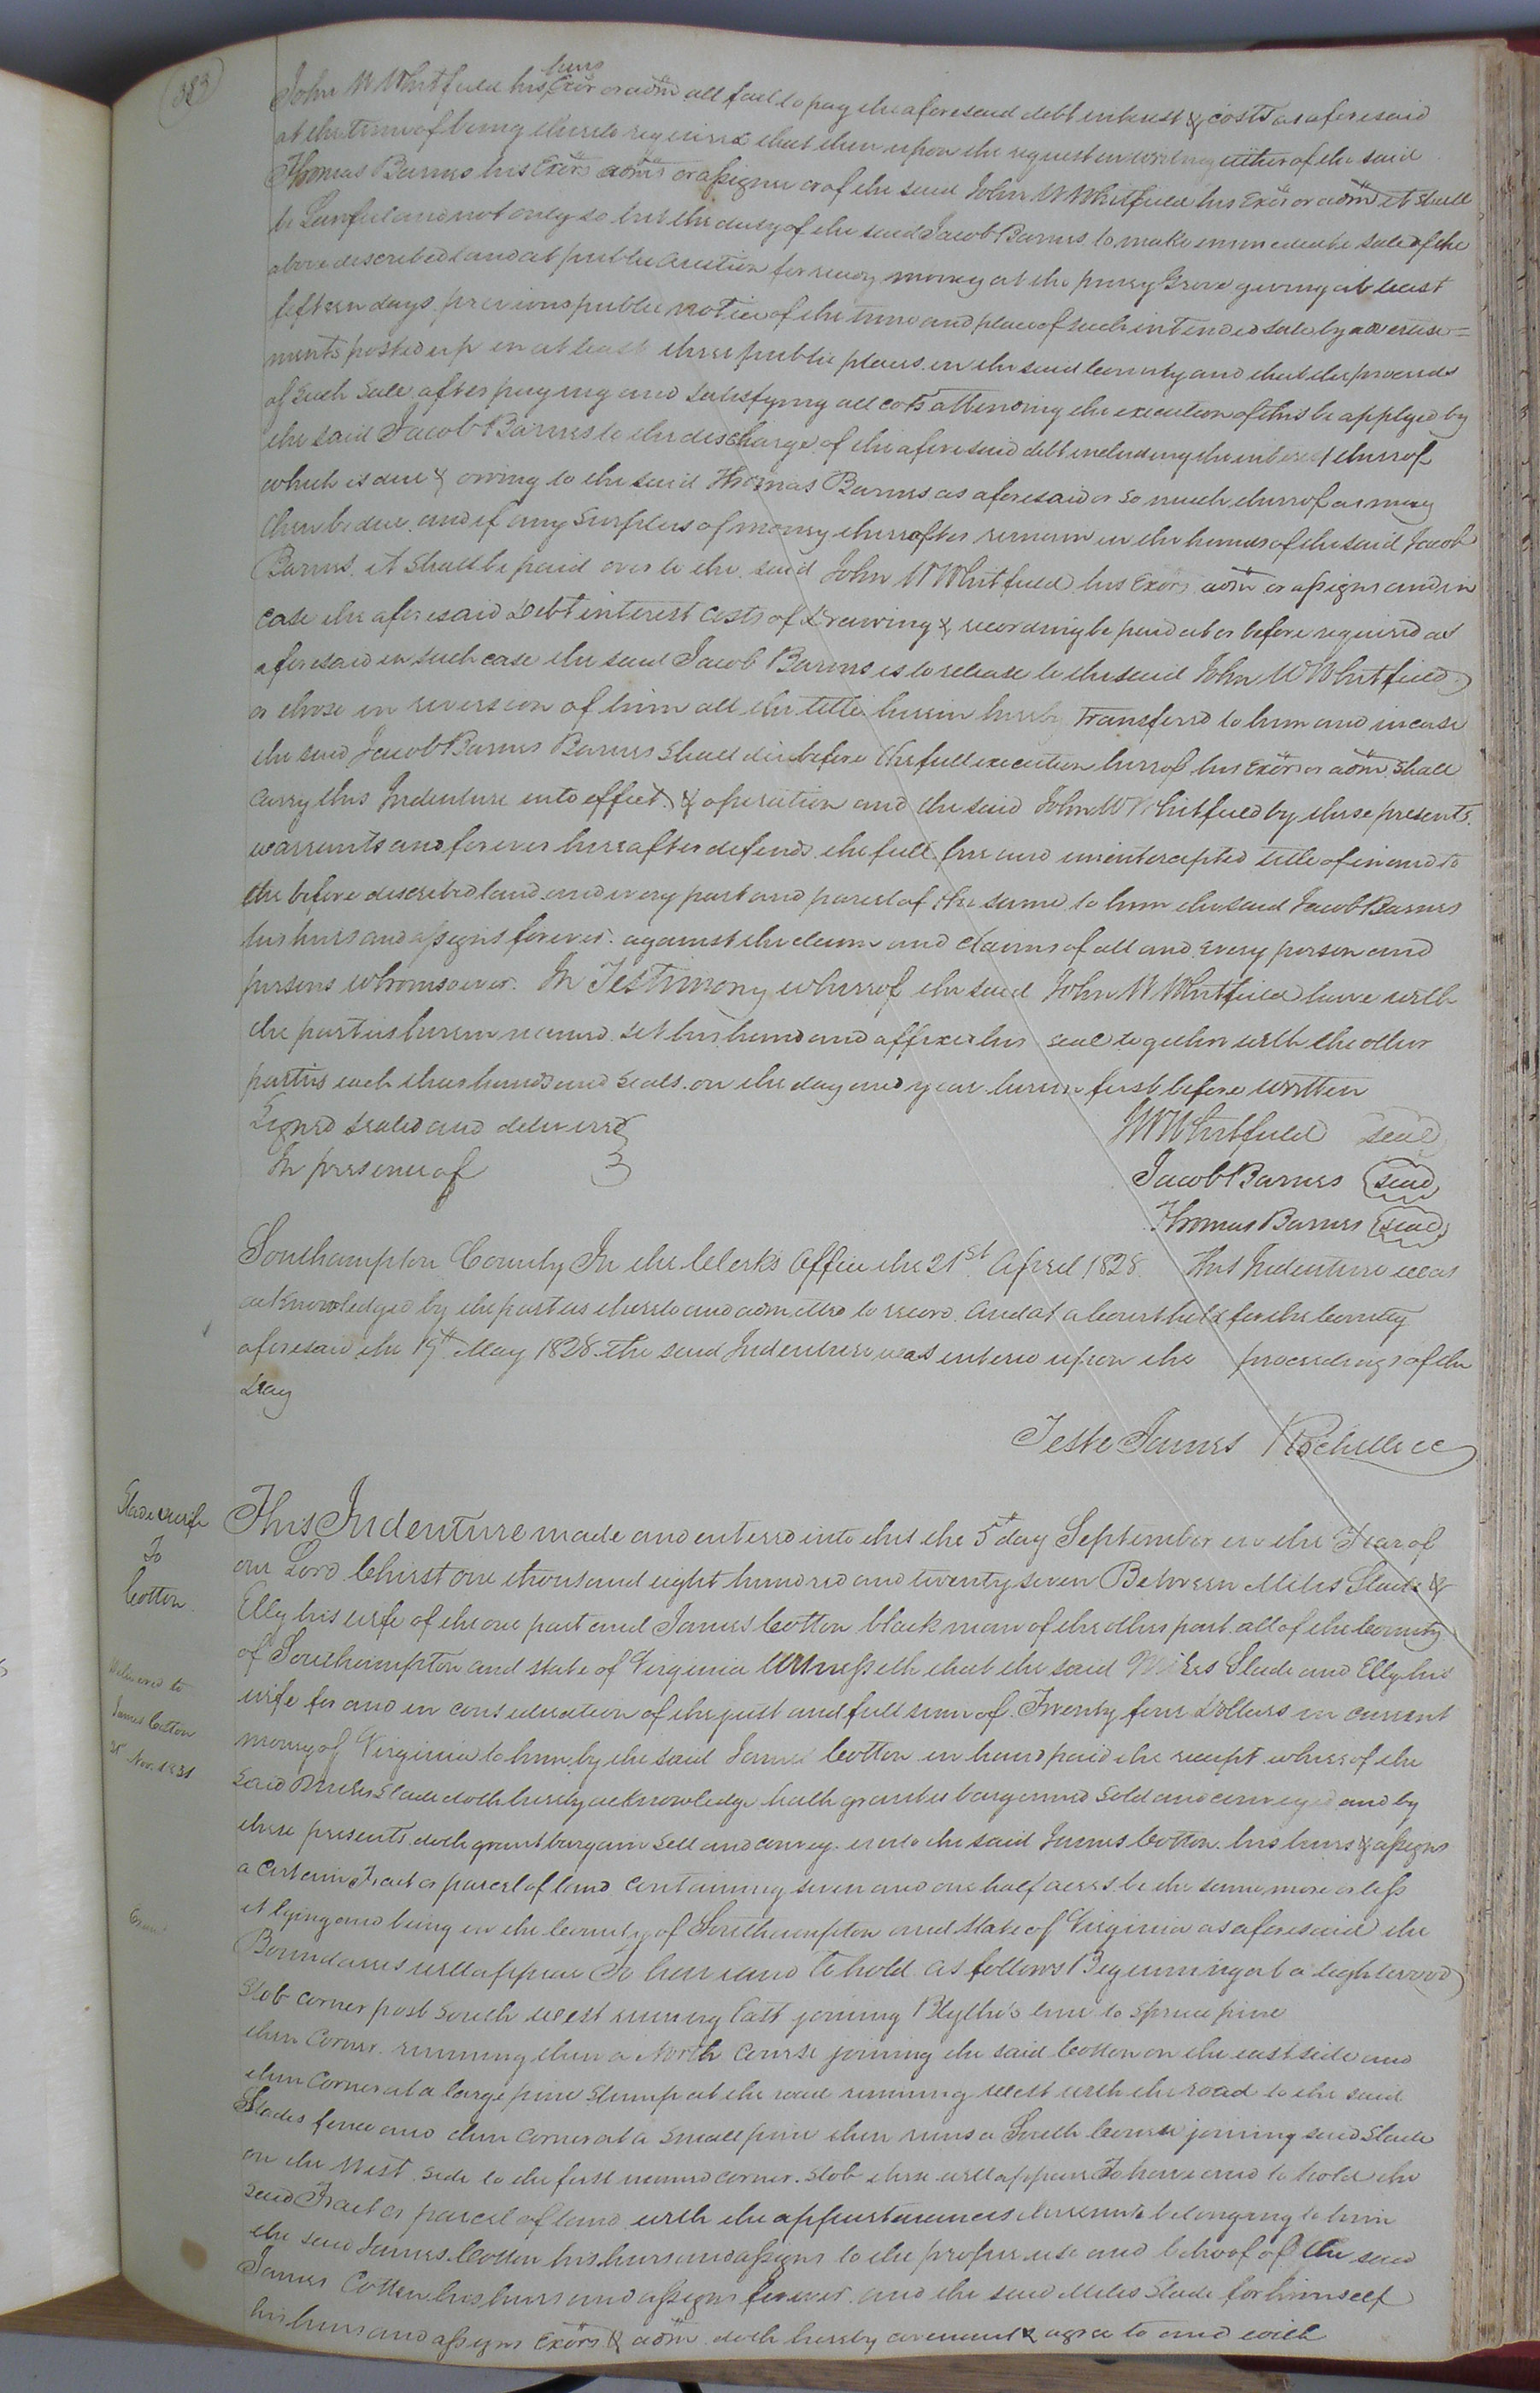 383
heirs
John W Whitfield his Exor or adm all fail to pay the aforesaid debt interest & costs as aforesaid
at the time of being thereto required that then upon the request in writing either of the said
Thomas Barnes his Exors adms or assigns or of the said John W Whitfield his Exor or adm it shall
be Lawful and not only so but the duty of the said Jacob Barnes to make immediate sale of the
above described land at public auction for ready money at the piney Grove giving at least
fifteen days previous public notice of the time and place of such intended sale by advertise=
ments posted up in at least three public places in the said County and that the proceeds
of such Sale after paying and satisfying all costs attending the execution of this be applyed by
the said Jacob Barnes to the discharge of the aforesaid debt including the interest thereof
which is due & owing to the said Thomas Barnes as aforesaid or so much thereof as may
then be due and if any Surplus of money thereafter remain in the hands of the said Jacob
Barnes it shall be paid over to the said John W Whitfield his Exors adm or assigns and in
case the aforesaid Debt interest costs of Drawing & recording be paid at or before required as
aforesaid in such case the said Jacob Barnes is to release to the said John W Whitfield
or those in reversion of him all the title herein hereby Transfered to him and incase
the said Jacob Barnes Barnes shall die before the full execution hereof his Exors or adm shall
carry this Indenture into effect & operation and the said John W Whitfield by these presents
warrants and forever hereafter defends the full free and uninterupted title of in and to
the before described land and every part and parcel of the same to him the said Jacob Barnes
his heirs and assigns forever against the claim and claims of all and every person and
persons whomsoever. In Testimony whereof the said John W Whitfield have with
the parties herein named set his hand and affixed his seal together with the other
parties each their hands and seals on the day and year herein first before written
Signed sealed and delivered
In presence of
JWWhitfield seal
Jacob Barnes seal
Thomas Barnes seal
Southampton County In the Clerks Office the 21st April 1828 This Indenture was
acknowledged by the parties thereto and admitted to record And at a Court held for the County
aforesaid the 19th May 1828 the said Indenture was entered upon the proceedings of the
Day
Teste James Rochelle cc
Slade & wife
To
Cotton
This Indenture made and entered into this the 5th day September in the Year of
our Lord Christ one thousand eight hundred and twenty seven Between Miles Slade &
Elly his wife of the one part and James Cotton black man of the other part all of the County
of Southampton and state of Virginia Witnesseth that the said Miles Slade and Elly his
wife for and in consideration of the just and full sum of Twenty four Dollars in current
Delivered to
James Cotton
Nov. 1831
money of Virginia to him by the said James Cotton in hand paid the receipt whereof the
said Miles Slade doth hereby acknowledge hath granted bargained sold and conveyed and by
these presents doth grant bargain sell and convey unto the said James Cotton his heirs & assigns
a certain Tract or parcel of land containing seven and one half acres be the same more or less
it lying and being in the County of Southampton and state of Virginia as aforesaid the
Boundaries will appear To have and to hold as follows Begining at a lightwood
Stob corner post South west running East joining Blythe's line to Spruce pine
then corner running then a North course joining the said Cotton on the east side and
then corner at a large pine stump at the road running West with the road to the said
Slades fence and then corner at a small pine then runs a South Course joining said Slade
on the West side to the first named corner Stob these will appear To have and to hold the
said Tract or parcel of land with the appurtenances thereunto belonging to him
the said James Cotton his heirs and assigns to the proper use and behoof of the said
James Cotten his heirs and assigns forever and the said Miles Slade for himself
his heirs and assigns Exors & adm doth hereby covenant & agree to and with